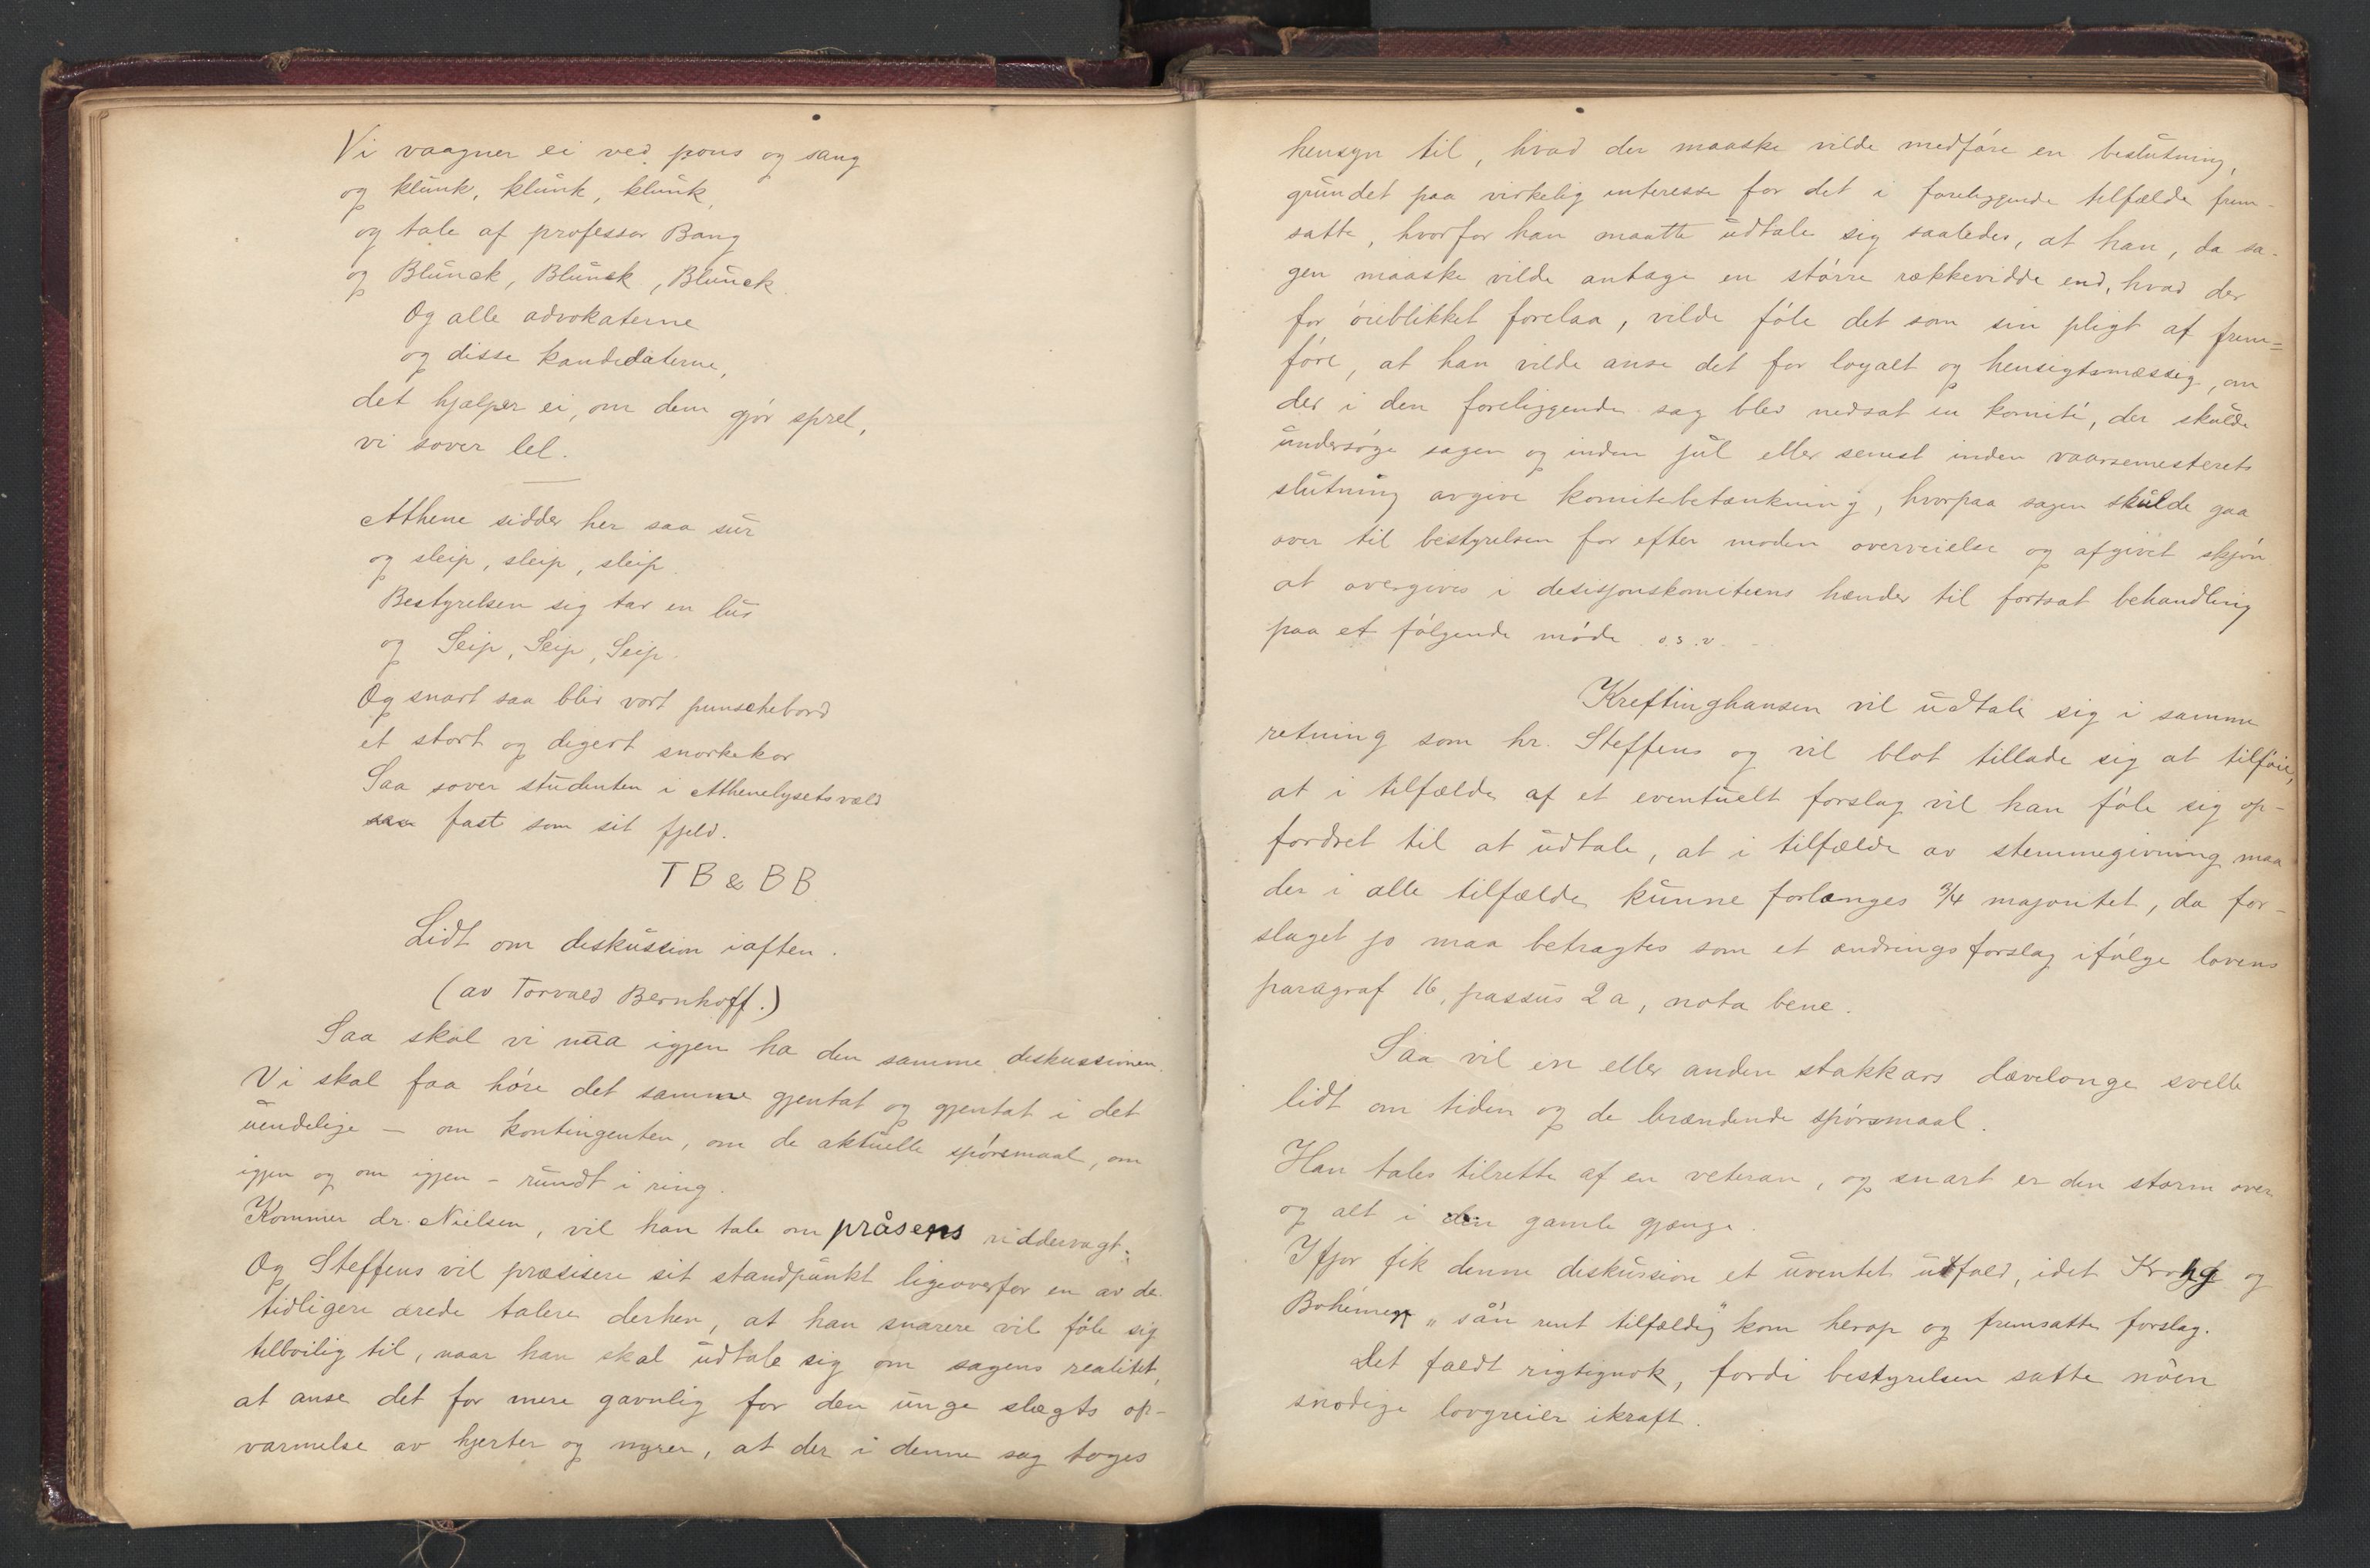 Vi vaagner ei ved pons og sang
og klunk, klunk, klunk,
og tale af professor Bang
og Blunck, Blunck, Blunck.
Og alle advokaterne
og disse kandidaterne,
det hjælper ei, om dem gjör sprel,
vi sover lel.
Athene sidder her saa sur
og sleip, sleip, sleip.
Bestyrelsen sig tar en lur
og Seip, Seip, Seip.
Og snart saa blir vort punschebord
et stort og digert snorkekor
Saa sover studenten i Athenelysets væld
fast som sit fjeld.
TB & BB
Lidt om diskussion iaften.
(av Torvald Bernhoff.)
Saa skal vi naa igjen ha den samme diskussionen.
Vi skal faa höre det samme gjentat og gjentat i det
uendelige — om kontingenten, om de aktuelle spörsmaal, om
igjen og om igjen – rundt i ring.
Kommer dr. Nielsen, vil han tale om pråsens riddervagt;
Og Steffens vil præsisere sit standpunkt ligeoverfor en av de
tidligere ærede talere derhen, at han snarere vil föle sig
tilbøilig til, naar han skal udtale sig om sagens realitet,
at anse det for mere gavnlig for den unge slægts op-
varmelse av hjerter og nyrer, at der i denne sag toges
hensyn til, hvad der maaske vilde medföre en beslutning,
grundet paa virkelig interesse for det i foreliggende tilfælde frem-
satte, hvorfor han maatte udtale sig saaledes, at han, da sa-
gen maaske vilde antage en större rækkevidde end, hvad der
for öieblikket forelaa, vilde föle det som sin pligt af frem=
före, at han vilde anse det for loyalt og hensigtsmæssig, om
der i den foreliggende sag blev nedsat en komité, der skulde
undersöge sagen og inden jul eller senest inden vaarsemesterets
slutning avgive komitebetænkning, hvorpaa sagen skulde gaa
over til bestyrelsen for efter moden overveielse og afgivet skjön
at overgives i desisjonskomiteens hænder til fortsat behandling
paa et fölgende möde o.s.v.
Kreftinghansen vil udtale sig i samme
retning som hr. Steffens og vil blot tillade sig at tilföie,
at i tilfælde af et eventuelt forslag vil han föle sig op-
fordret til at udtale, at i tilfælde av stemmegivning maa
der i alle tilfælde kunne forlanges 3/4 majoritet, da for-
slaget jo maa betragtes som et ændringsforslag ifölge lovens
paragraf 16, passus 2 a, nota bene.
Saa vil en eller anden stakkars dævelonge svelle
lidt om tiden og de brændende spörsmaal.
Han tales tilrette af en veteran, og snart er den storm over
og alt i den gamle gjænge.
Ifjor fik denne diskussion et uventet utfald, idet Krohg og
Bohémen „sån rent tilfældig" kom herop og fremsatte forslag.
Det faldt rigtignok, fordi bestyrelsen satte nöen
snodige lovgreier ikraft.